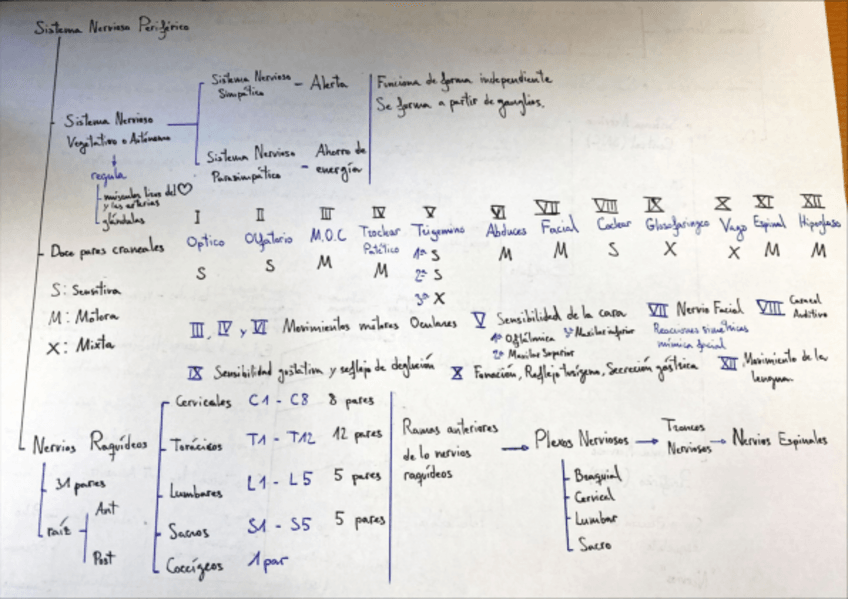 Sistema Nervioso Periférico
Sistema Nervioso
Simpático
- Alerta
Funciona de forma independiente
Se forma a partir de ganglios.
Sistema Nervioso
Vegetativo o Autónomo
Sistema Nervioso
Parasimpático
- Ahorro de
energía
regula
músculos lisos del ♡
y las arterias
glándulas
I II III IV V VI VII VIII IX X XI XII
Doce pares craneales
Optico Olfatorio M.O.C Troclear Trigemino Abduces Facial Coclear Glosofaringeo Vago Espinal Hipogloso
Patético
S S M M 1ª S M M S X X M M
2ª S
3ª X
S: Sensitiva
M: Motora
X: Mixta
III, IV y VI Movimientos motores Oculares
V Sensibilidad de la cara
1ª Oftálmica 3ª Maxilar inferior
2ª Maxilar Superior
VII Nervio Facial
Reacciones simétricas
mímica facial
VIII Auditivo
IX Sensibilidad gustativa y reflejo de deglución
X Fonación, Reflejo tusígeno, Secreción gástrica
XII Movimiento de la
lengua.
Nervios Raquídeos
31 pares
raíz
Ant
Post
Cervicales C1 - C8 8 pares
Torácicos T1 - T12 12 pares
Lumbares L1 - L5 5 pares
Sacros S1 - S5 5 pares
Coccígeos 1 par
Ramas anteriores
de lo nervios
raquídeos
→ Plexos Nerviosos → Troncos
Nerviosos → Nervios Espinales
Braquial
Cervical
Lumbar
Sacro